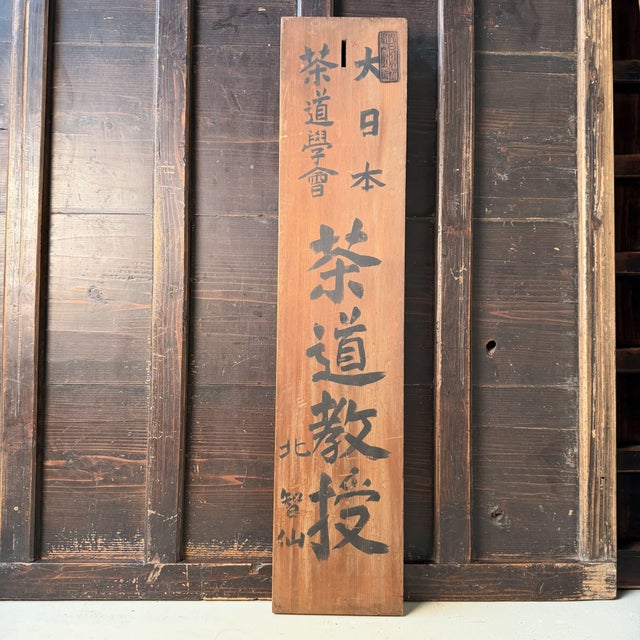 大日本
茶道學會
茶道教授
北智仙